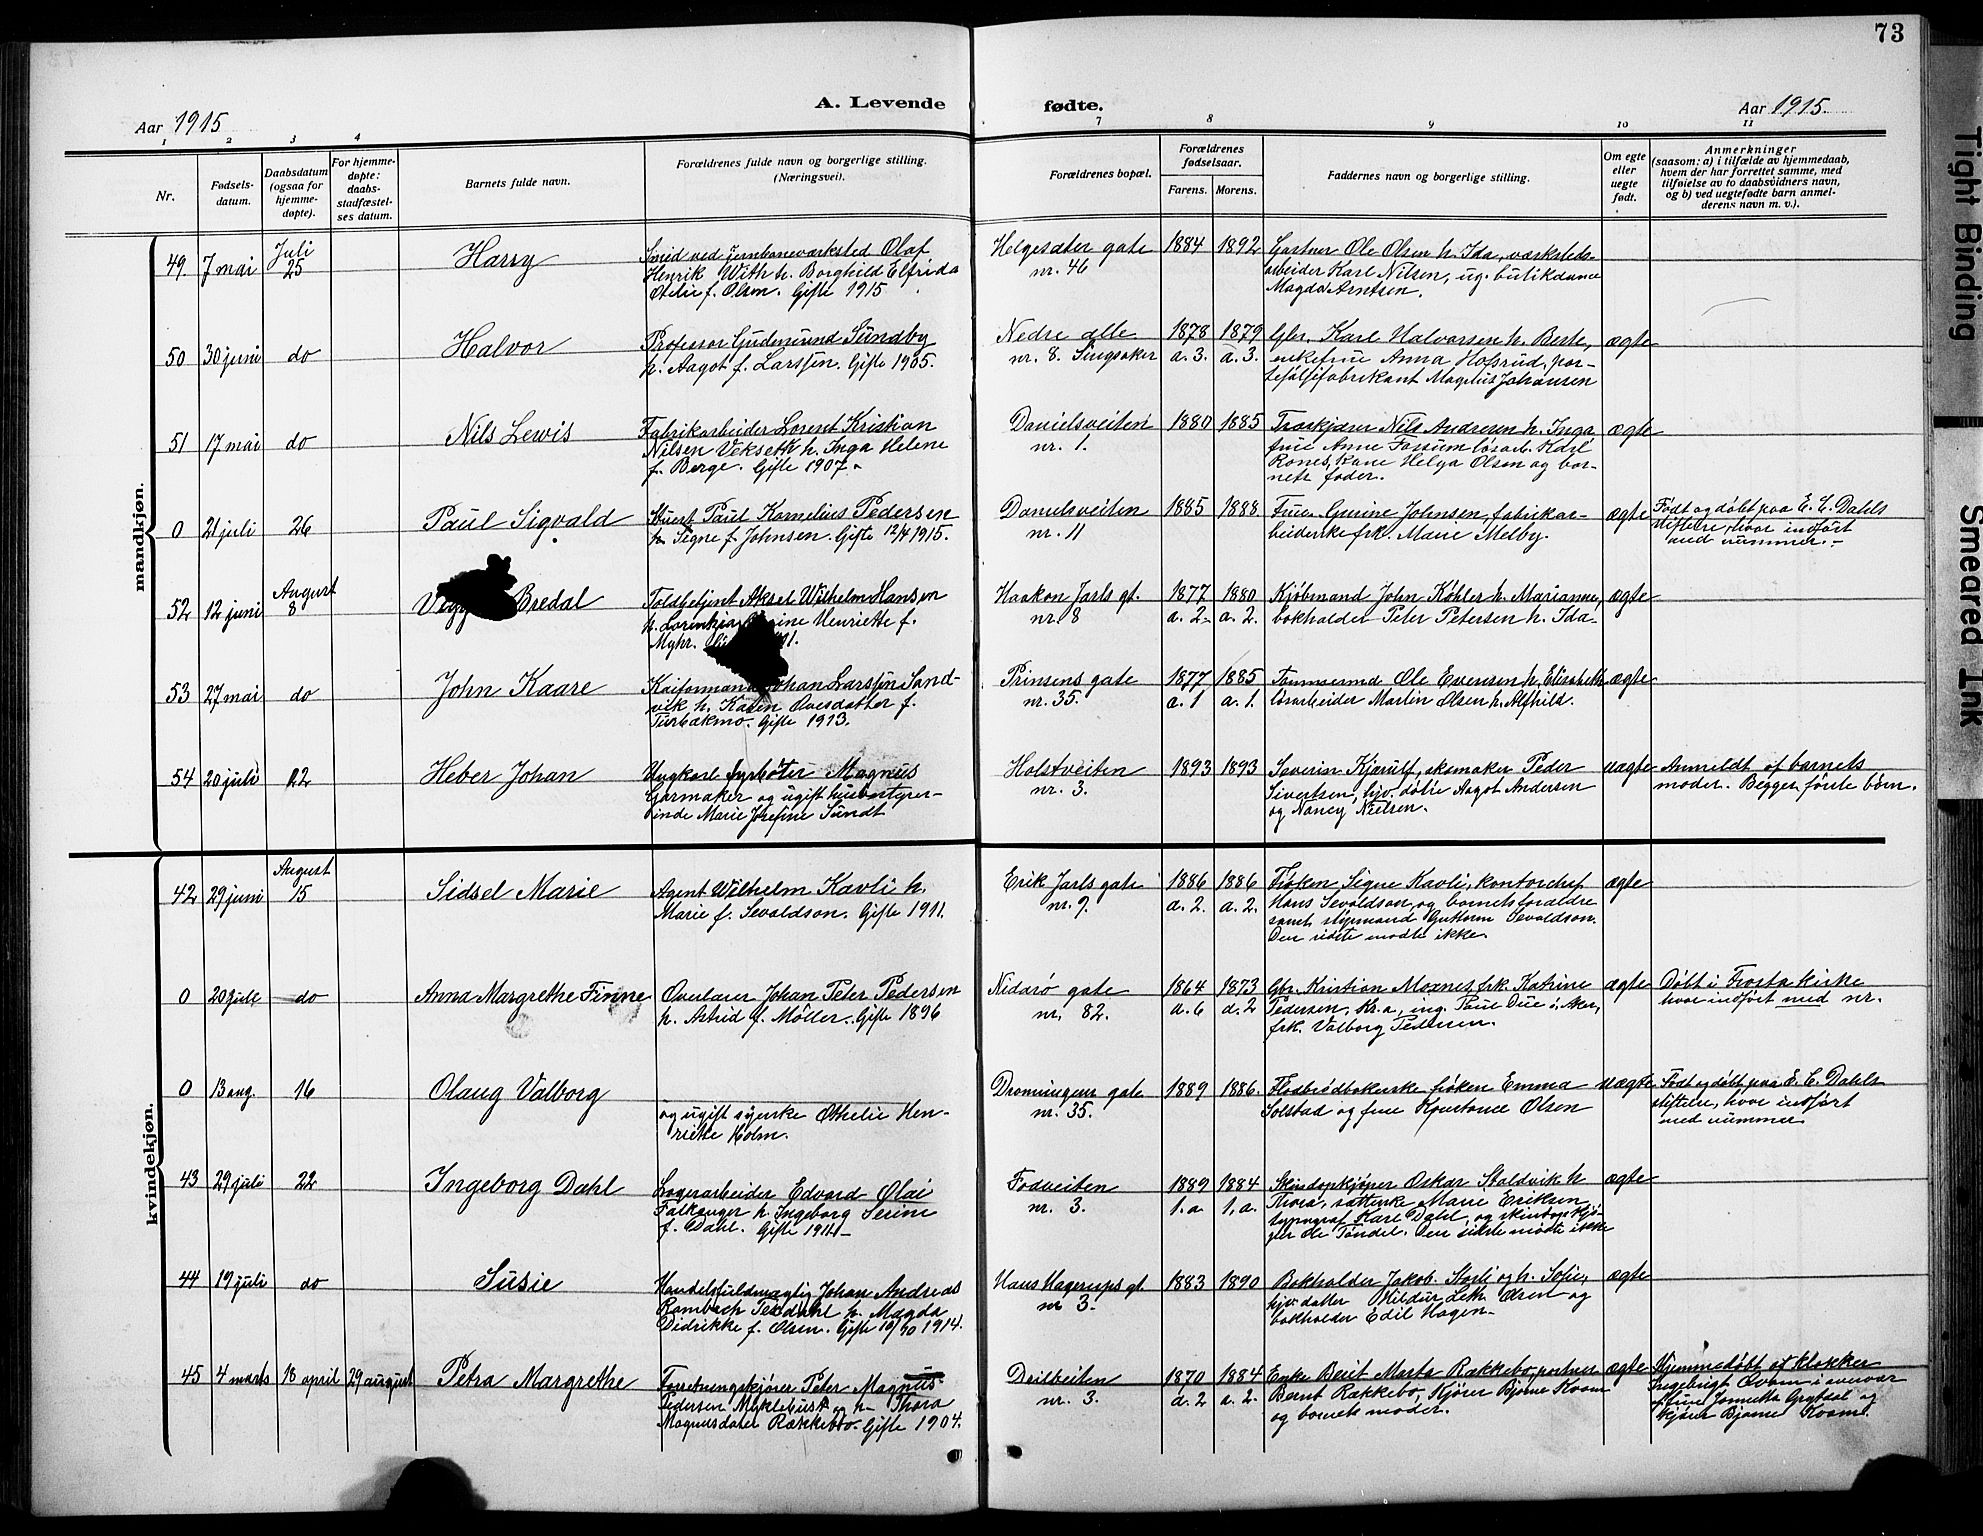 73
A. Levende fødte.
Aar 1915
Aar 1915.
1 2 3 4 7 8 9 10 11
Nr.
Fødsels-
datum.
Daabsdatum
(ogsaa for
hjemme-
døpte).
For hjemme-
døpte:
daabs-
stadfæstel-
ses datum.
Barnets fulde navn.
Forældrenes fulde navn og borgerlige stilling.
(Næringsvei).
Forældrenes bopæl.
Forældrenes
fødselsaar.
Farens. Morens.
Faddernes navn og borgerlige stilling.
Om egte
eller
uegte
født.
Anmerkninger
(saasom: a) i tilfælde av hjemmedaab,
hvem der har forrettet samme, med
tilføielse av to daabsvidners navn,
og b) ved uegtefødte barn anmel-
derens navn m. v.).
mandkjøn.
49. 7 mai Juli 25 Harry
Smed ved jernbaneverksted Olaf
Henrik With h. Borghild Elfrida
Otelie f. Olsen. Gifte 1915
Helgesæter gate
nr. 46
1884 1892
Gartner Ole Olsen h. Ida, verksteds-
arbeider Karl Nilsen, ug. butikdame
Magda Arntsen.
50 30 juni do Halvor
Professor Gudmund Sundby
h. Aagot f. Larssen. Gifte 1905.
Nedre alle
nr. 8. Singsaker
1878 1879
a. 3. a. 3.
Gbr. Karl Halvorsen h. Berte,
enkefrue Anna Hofsrud, por-
teføljefabrikant Magelius Johansen
ægte
51 17 mai do Nils Lewis
Fabrikarbeider Lorent Kristian
Nilsen Vekseth h. Inga Helene
f. Berge. Gifte 1907.
Danielsveiten
nr. 1.
1880 1885
Træskjærer Nils Andresen h. Inga
frue Anne Fossum løsarb. Karl
Rones, kone Helga Olsen og bar-
nets fader.
ægte
0 21 juli 26 Paul Sigvald
Stuert Paul Kornelius Pedersen
h. Signe f. Johnsen. Gifte 12/4 1915.
Danielsveiten
nr. 11
1885 1888
Fruen Gurine Johnsen, fabrikar-
beiderske frk. Marie Melby.
ægte
Født og døbt paa E. C. Dahls
stiftelse, hvor indført
med nummer.
52 12 juni August 8 Bredal
Toldbetjent Aksel Wilhelm Hansen
Henriette f.
Myhr.
Haakon Jarls gt.
nr. 8
1877 1880
a. 2. a. 2.
Kjøbmand John Köhler h. Marianne,
bokholder Peter Petersen h. Ida
ægte
53 27 mai do John Kaare
Kaiformand Johan Larssen Sand-
vik h. Karen Olvesdatter f.
Turbækmo. Gifte 1913.
Prinsens gate
nr. 35.
1877 1885
a. 1 a. 1.
Tømmermd Ole Evensen h. Elisabeth
løsarbeider Martin Olsen h. Alfhild.
ægte
54 20 juli 22 Heber Johan
Ungkarl fyrbøter Magnus
Garmaker og ugift husbestyrer-
inde Marie Josefine Sundt
Holstveiten
nr. 3.
1893 1893
Severin Kjerulf, skomaker Peder
Sivertsen, hjv. døtre Aagot Andersen
og Nancy Nielsen.
uægte
Anmeldt af barnets
moder. Begges første børn.
kvindekjøn.
42 29 juni August 15 Sidsel Marie
Agent Wilhelm Kavli h.
Marie f. Sevaldson. Gifte 1911.
Erik Jarls gate
nr. 9.
1886 1886
a. 2. a. 2.
Frøken Signe Kavli, kontorchef
Hans Sevaldson, og barnets forældre
samt styrmand Guttorm Sevaldson.
Den sidste mødte ikke.
ægte
0 20 juli do Anna Margrethe Finne
Overlærer Johan Peter Pedersen
h. Astrid f. Møller. Gifte 1896
Nidarø gate
nr. 82.
1864 1873
a. 6 a. 2
Gbr. Kristian Moxnes, frk. Katrine
Pedersen, Kr.a, ing. Paul Due i Aker,
frk. Valborg Pedersen.
ægte
Døbt i Frosta kirke
hvor indført med nr.
0 13 aug. 16 Olaug Valborg
og ugift syerske Othelie Hen-
riette Holm.
Dronningens gate
nr. 35.
1889 1886
Flatbrødbakerske frøken Emma
Solstad og frue Konstance Olsen
uægte
Født og døbt paa E. C. Dahls
stiftelse, hvor indført
med nummer
43 29 juli 22 Ingeborg Dahl
Lagerarbeider Edvard Olai
Falkanger h. Ingeborg Serine
f. Dahl. Gifte 1911
Fodveiten
nr. 3.
1889 1884
1. a. 1. a.
Oskar Staldvik h
Thora, Marie Eriksen
typograf Karl Dahl, og
Ole Tøndel. Den sidste mødte ikke
ægte
44 19 juli do Susie
Handelsfuldmægtig Johan Andreas
Rambech Tesdahl h. Magda
Didrikke f. Olsen. Gifte 10/10 1914.
Hans Hagerups gt.
nr 3.
1883 1890
Bokholder Jakob Storli og h. Sofie,
hjv. datter Hildur Olsen og
bokholder Edil Hagen.
ægte
45 4 marts 18 april 29 august Petra Margrethe
Forretningskjører Peter Magnus
Pedersen Myklebust og h. Thora
Magnusdater Rækkebo. Gifte 1904.
nr. 3.
1870 1884
a. 2 a. 2.
Enke Berit Marta Rækkebo, portner
Bernt Rækkebo, kjører Bjarne Kvam
og barnets moder.
ægte
Hjemmedøbt af klokker
Ingebrigt Kvam i nærvær
af frue Jonnetta Grytdal og
kjører Bjarne Kvam.
Tight Binding
Smeared Ink